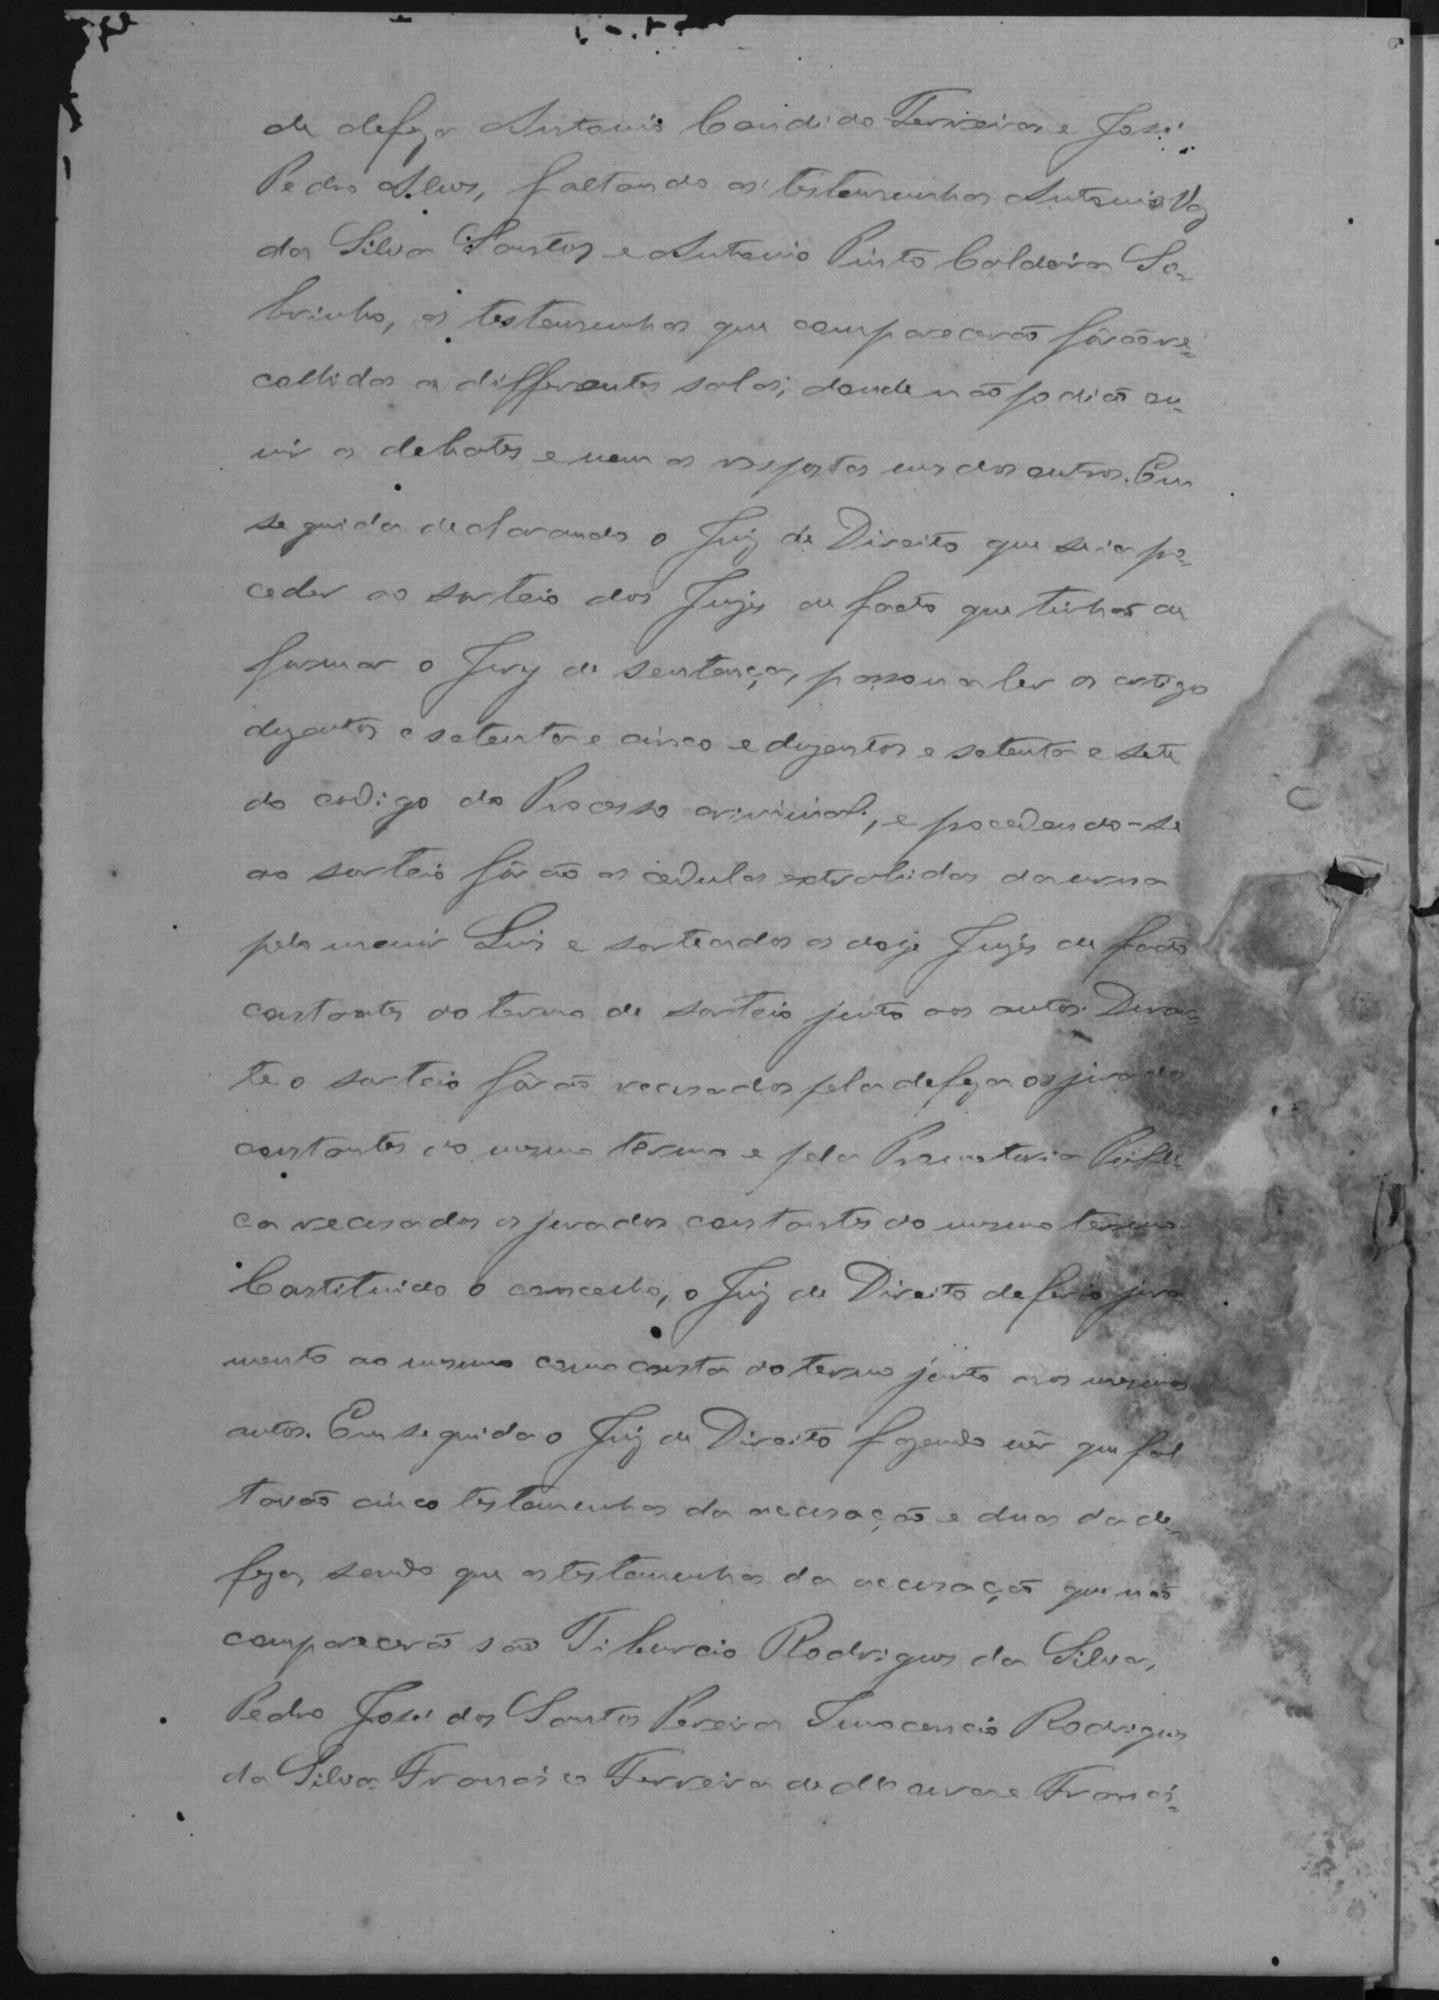 da defeza Antonio Candido Ferreira e José
Pedro Alves, faltando as testemunhas Antonio Vaz
da Silva Santos e Antonio Pinto Caldeira So-
brinho, as testemunhas que comparecerão fôrão re-
colhidas a differentes salas, donde não podião ou-
vir os debates e nem as respostas uns dos outros. Em
seguida declarando o Juiz de Direito que se ia pro-
ceder ao sorteio dos Juizes de facto que tinhão de
formar o Jury de sentença, passou a ler os artigos
duzentos e setenta e cinco e duzentos e setenta e sete
do codigo do Processo criminal, e procedendo-se
ao sorteio fôrão as cedulas extrahidas da urna
pelo menor Luis e sorteados os doze Juizes de facto
constantes do termo de sorteio junto aos autos. Duran-
te o sorteio fôrão recusados pela defeza os jurados
constantes do mesmo termo e pela Promotoria Publi-
ca recusados os jurados constantes do mesmo termo.
Constituido o conselho, o Juiz de Direito deferio jura
mento ao mesmo como consta do termo junto aos mesmos
autos. Em seguida o Juiz de Direito fazendo vêr que fal
tavão cinco testemunhas da accusação e duas da de-
feza, sendo que as testemunhas da accusação que não
comparecerão são Tiburcio Rodrigues da Silva,
Pedro José dos Santos Pereira Innocencio Rodrigues
da Silva Francisco Ferreira de e Franci-